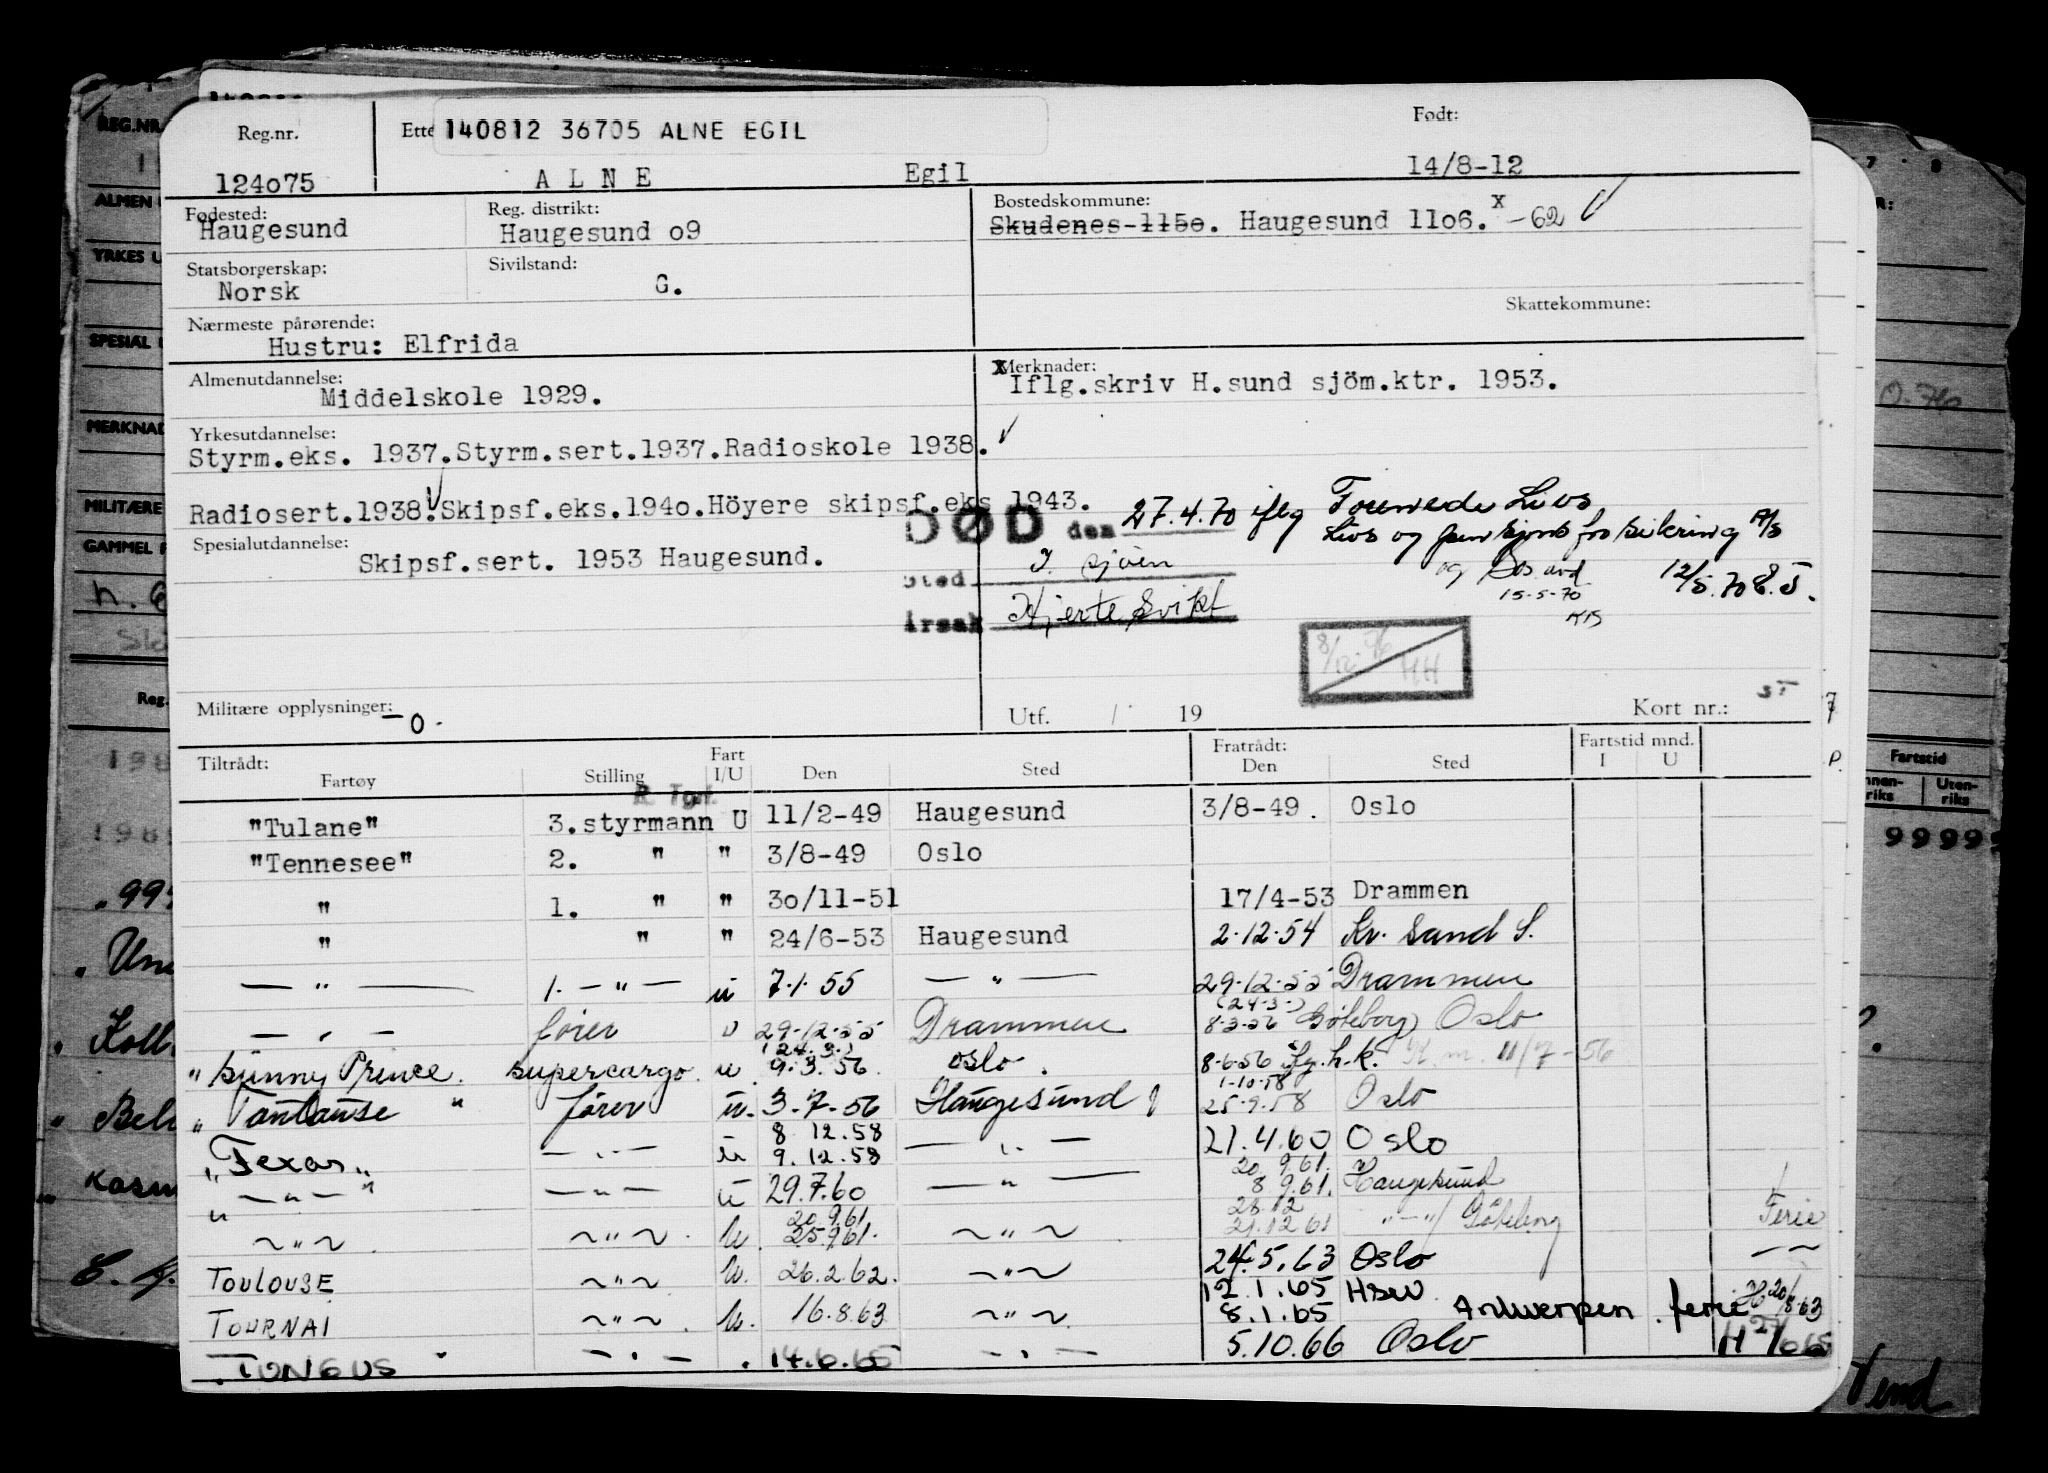 Reg.nr. Ette 140812 36705 ALNE EGIL Født:
124o75 A L N E Egil 14/8-12
Fødested: Reg. distrikt: Bostedskommune:
Haugesund Haugesund o9 Skudenes-115o. Haugesund 11o6. x -62
Statsborgerskap: Sivilstand:
Norsk G.
Skattekommune:
Nærmeste pårørende:
Hustru: Elfrida
Almenutdannelse: x Merknader:
Middelskole 1929. Iflg.skriv H.sund sjöm.ktr. 1953.
Yrkesutdannelse:
Styrm.eks. 1937.Styrm.sert.1937.Radioskole 1938.
Radiosert.1938.Skipsf.eks.194o.Höyere skipsf.eks 1943.
DØD den 27.4.70 iflg Forenede Livs
Livs og pensjons forsikring A/S
Spesialutdannelse:
Skipsf.sert. 1953 Haugesund.
Sted I. sjöen og Dos avd 12/5.70 E.S.
15-5-70
Årsak Hjerte svikt KB
8/12 76 HH
Militære opplysninger: -o-
Utf. / 19 Kort nr.:
Tiltrådt: Fart Fratrådt: Fartstid mnd.
Fartøy Stilling I/U Den Sted Den Sted I U
"Tulane" 3.styrmann U 11/2-49 Haugesund 3/8-49. Oslo
"Tennesee" 2. " " 3/8-49 Oslo
" 1. " " 3o/11-51 17/4-53 Drammen
" " " 24/6-53 Haugesund 2.12.54 Kr. sand S.
— " — 1. — " — u 7.1.55 — " — 29.12.55 Drammen
— " — fører u 29.12.55 Drammen (24.3.) 8.3.56 Göteborg) Oslo
" Sunny Prince. supercargo. u (24.3.) 9.3.56. oslo. 8-6-56 Sy.h.k. 11/7-56
" Toulouse " fører u. 3.7-56 Haugesund 1-10-58 25.9.58 Oslo
" Texas " — " — u 8 12.58 9.12.58 — " — 21.4.60 Oslo
" — " — " — " — u 29.7.60 — " — 20 9.61. 8 9.61. Haugesund
~ " ~ ~ " ~ U. 20.9.61 25.9.61. ~ " ~ 28.12 21.12 61 " — " / Göteborg Ferie
TOULOUSE ~ " ~ U. 26.2.62. ~ " ~ 24.5.63 Oslo
TOURNAI ~ " ~ U. 16.8.63 ~ " ~ 12.1.65 8.1.65 Antwerpen. ferie H 20/8-63
TUNGUS — " — 14.6.65 — " — 5.10.66 Oslo
REG.NR.
ALMEN
YRKES U
SPESIAL
MERKNAD
MILITÆRE
GAMMEL
Reg.
Fartstid
Uten-
riks
9999
Vend